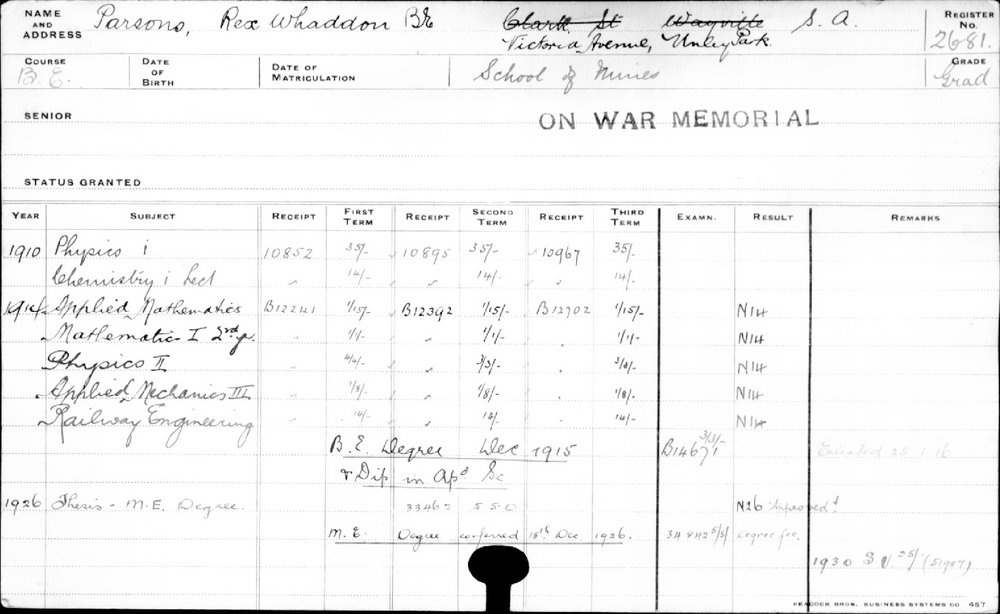 NAME AND ADDRESS Parsons, Rex Whaddon BE Clark St Wayville S. A. REGISTER No. 2681.
Victoria Avenue, Unley Park.
COURSE B.E. DATE OF BIRTH DATE OF MATRICULATION School of Mines GRADE Grad
SENIOR
ON WAR MEMORIAL
STATUS GRANTED
YEAR SUBJECT RECEIPT FIRST TERM RECEIPT SECOND TERM RECEIPT THIRD TERM EXAMN. RESULT REMARKS
1910 Physics i 10852 35/- 10895 35/- 10967 35/-
Chemistry i Lect " 14/- " 14/- " 14/-
Applied Mathematics B12241 1/15/- B12392 1/15/- B12702 1/15/- N14
Mathematics I 2nd yr. " 1/1/- " 1/1/- 1/1/- N14
Physics II " " 3/3/- 3/3/- N14
Applied Mechanics III " 1/8/- " 1/8/- 1/8/- N14
Railway Engineering " 14/- " 14/- 14/- N14
B.E. Degree Dec 1915 B14671 3/3/- 25.1.16
& Dip in Apd Sc
1926 Thesis - M.E. Degree. 33462 5 5. 0 N26 Approved
M.E. Degree conferred 15th Dec 1926. 34842 5/5/ Degree fee.
1930 S.V. 25/- (51987)
PEACOCK BROS. BUSINESS SYSTEMS CO 457